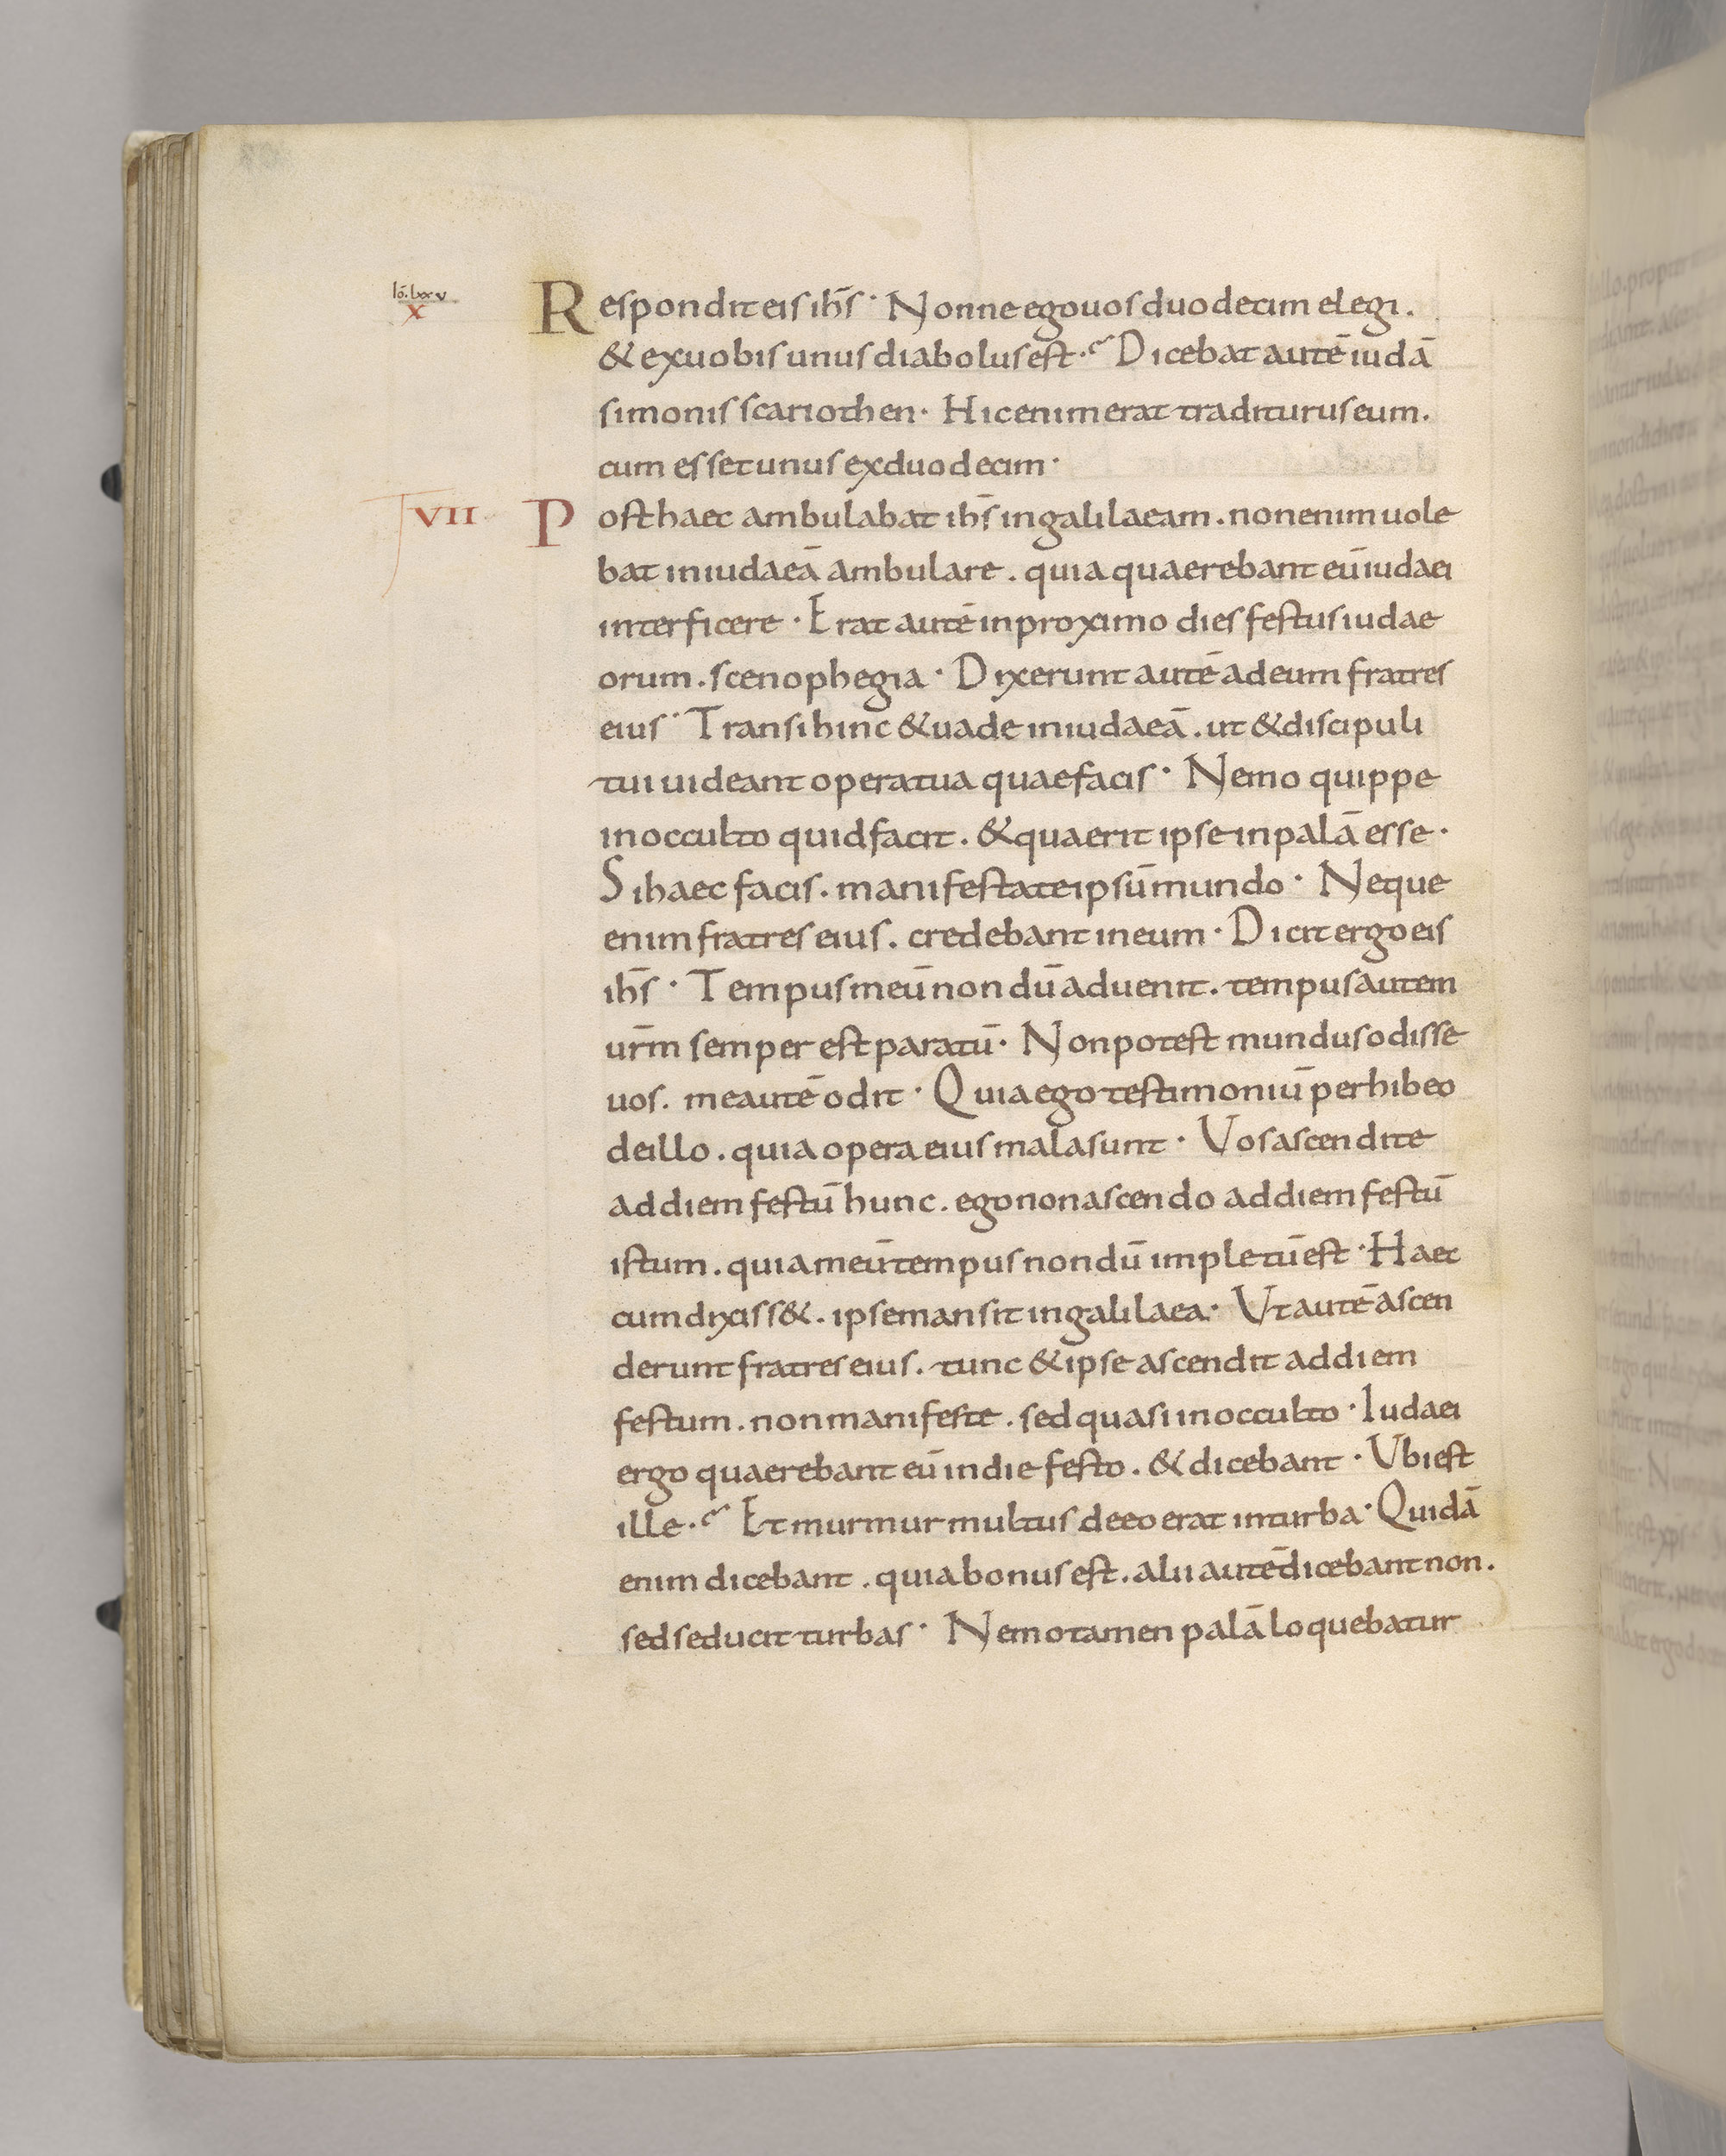 Iō. lxxv
X
Respondit eis ihs̄· Nonne ego uos duodecim elegi.
& ex uobis unus diabolus est· Dicebat autē iudā
simonis scariothen· Hic enim erat traditurus eum.
cum esset unus ex duodecim·
VII Post haec ambulabat ihs̄ in galilaeam. non enim uole
bat in iudaeā ambulare. quia quaerebant eū iudaei
interficere· Erat autē in proximo dies festus iudae
orum. scenophegia· Dixerunt autē ad eum fratres
eius· Transi hinc & uade in iudaeā. ut & discipuli
tui uideant opera tua quae facis· Nemo quippe
in occulto quid facit. & quaerit ipse in palā esse·
Si haec facis. manifesta te ipsū mundo· Neque
enim fratres eius. credebant in eum· Dicit ergo eis
ihs̄· Tempus meū nondū aduenit. tempus autem
ur̄m semper est paratū· Non potest mundus odisse
uos. me autē odit· Quia ego testimoniū perhibeo
de illo. quia opera eius mala sunt· Vos ascendite
ad diem festū hunc. ego non ascendo ad diem festū
istum. quia meū tempus nondū impletū est· Haec
cum dixiss&. ipse mansit in galilaea· Vt autē ascen
derunt fratres eius. tunc & ipse ascendit ad diem
festum. non manifeste. sed quasi in occulto· Iudaei
ergo quaerebant eū in die festo. & dicebant· Vbi est
ille· Et murmur multus de eo erat in turba· Quidā
enim dicebant. quia bonus est. alii autē dicebant non.
sed seducit turbas· Nemo tamen palā loquebatur